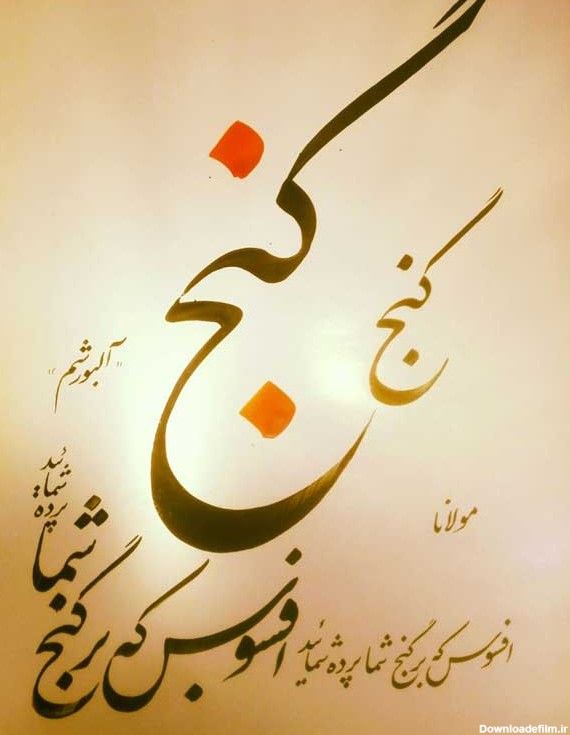 گنج
گنج
«آلبورشم»
مولانا
افسوس که بر گنج شما پرده شمائید
افسوس که بر گنج شما پرده شمائید
Downloadefilm.ir